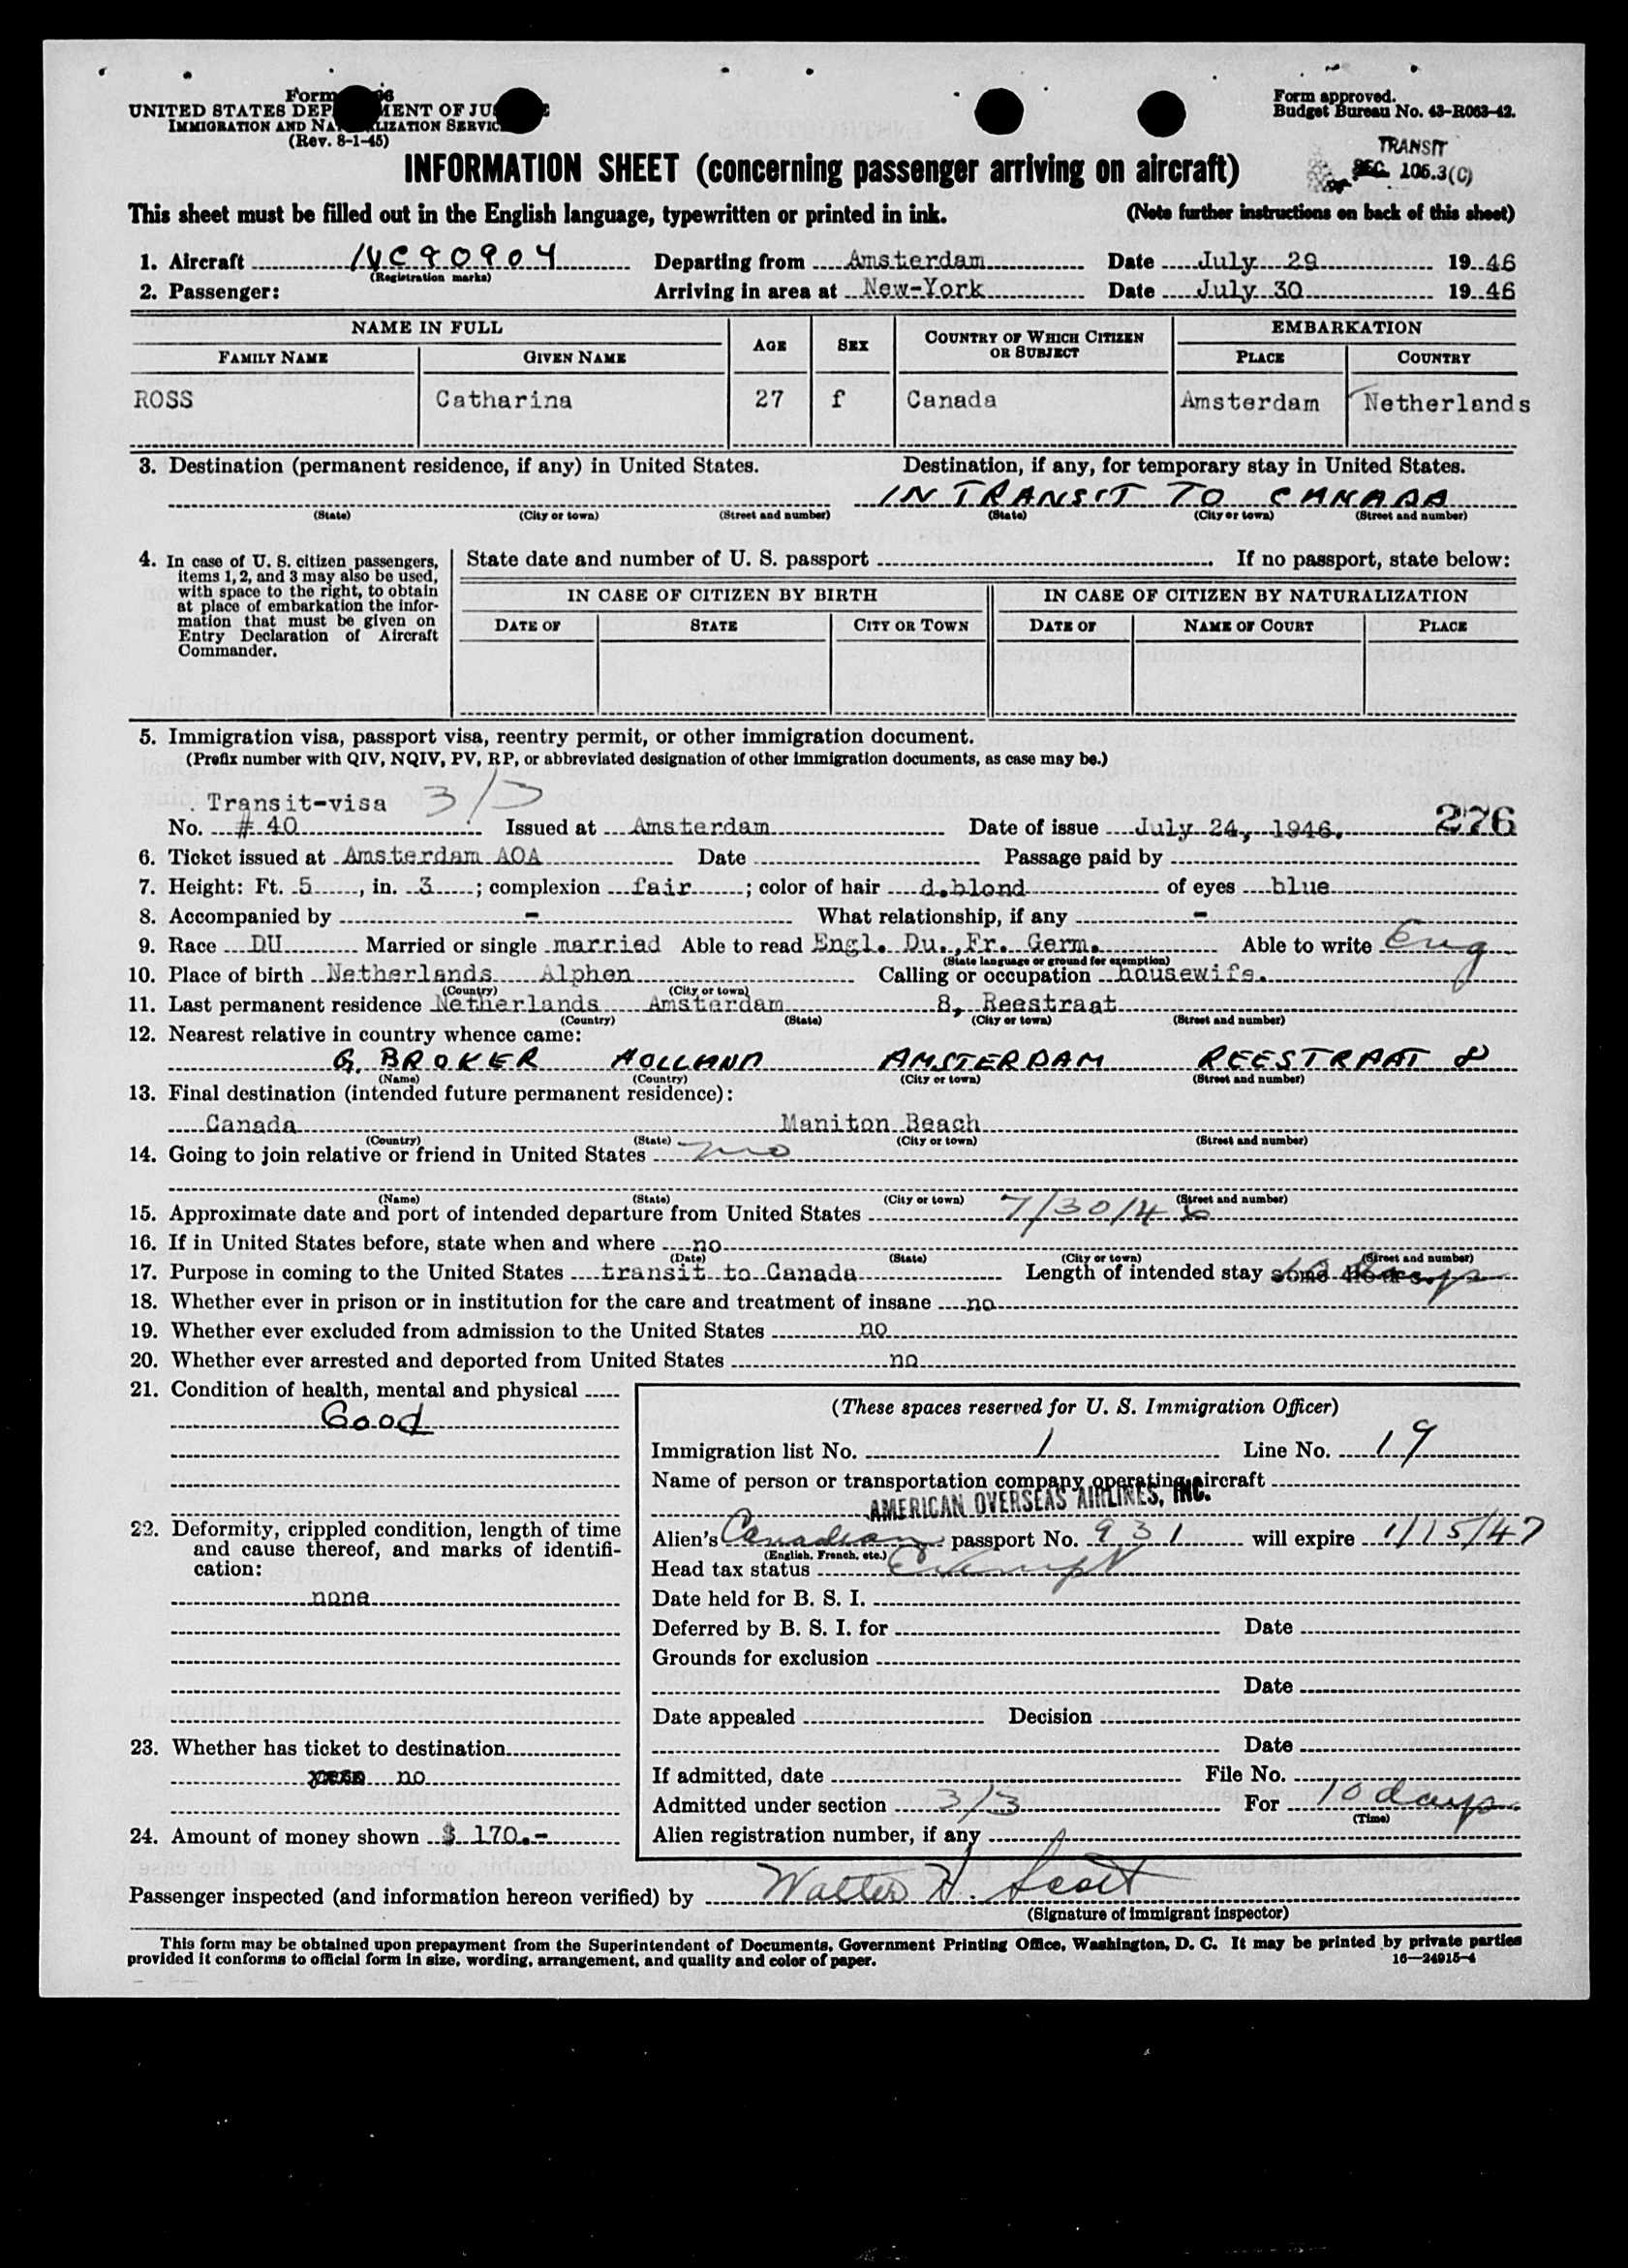 Form
UNITED STATES DEP MENT OF JUS
IMMIGRATION AND NA LIZATION SERVIC
(Rev. 8-1-45)
Form approved.
Budget Bureau No. 43-R063-42.
TRANSIT
SEC. 105.3(C)
INFORMATION SHEET (concerning passenger arriving on aircraft)
This sheet must be filled out in the English language, typewritten or printed in ink. (Note further instructions on back of this sheet)
1. Aircraft NC90904 Departing from Amsterdam Date July 29 1946
(Registration marks)
2. Passenger: Arriving in area at New-York Date July 30 1946
NAME IN FULL AGE SEX COUNTRY OF WHICH CITIZEN OR SUBJECT EMBARKATION
FAMILY NAME GIVEN NAME PLACE COUNTRY
ROSS Catharina 27 f Canada Amsterdam Netherlands
3. Destination (permanent residence, if any) in United States. Destination, if any, for temporary stay in United States.
IN TRANSIT TO CANADA
(State) (City or town) (Street and number) (State) (City or town) (Street and number)
4. In case of U. S. citizen passengers, items 1, 2, and 3 may also be used, with space to the right, to obtain at place of embarkation the information that must be given on Entry Declaration of Aircraft Commander.
State date and number of U. S. passport If no passport, state below:
IN CASE OF CITIZEN BY BIRTH IN CASE OF CITIZEN BY NATURALIZATION
DATE OF STATE CITY OR TOWN DATE OF NAME OF COURT PLACE
5. Immigration visa, passport visa, reentry permit, or other immigration document.
(Prefix number with QIV, NQIV, PV, RP, or abbreviated designation of other immigration documents, as case may be.)
Transit-visa 3/3
No. # 40 Issued at Amsterdam Date of issue July 24, 1946. 276
6. Ticket issued at Amsterdam AOA Date Passage paid by
7. Height: Ft. 5, in. 3; complexion fair; color of hair d.blond of eyes blue
8. Accompanied by - What relationship, if any -
9. Race DU Married or single married Able to read Engl. Du.,Fr. Germ. Able to write Eng
(State language or ground for exemption)
10. Place of birth Netherlands Alphen Calling or occupation housewife.
(Country) (City or town)
11. Last permanent residence Netherlands Amsterdam 8, Reestraat
(Country) (State) (City or town) (Street and number)
12. Nearest relative in country whence came:
G. BROKER HOLLAND AMSTERDAM REESTRAAT 8
(Name) (Country) (City or town) (Street and number)
13. Final destination (intended future permanent residence):
Canada Maniton Beach
(Country) (State) (City or town) (Street and number)
14. Going to join relative or friend in United States no
(Name) (State) (City or town) (Street and number)
15. Approximate date and port of intended departure from United States 7/30/46
16. If in United States before, state when and where no
(Date) (State) (City or town) (Street and number)
17. Purpose in coming to the United States transit to Canada Length of intended stay some
18. Whether ever in prison or in institution for the care and treatment of insane no
19. Whether ever excluded from admission to the United States no
20. Whether ever arrested and deported from United States no
21. Condition of health, mental and physical
Good
22. Deformity, crippled condition, length of time and cause thereof, and marks of identification:
none
23. Whether has ticket to destination
no
24. Amount of money shown $ 170.-
(These spaces reserved for U. S. Immigration Officer)
Immigration list No. 1 Line No. 19
Name of person or transportation company operating aircraft
AMERICAN OVERSEAS AIRLINES, INC.
Alien's Canadian passport No. 931 will expire 1/15/47
(English, French, etc.)
Head tax status Exempt
Date held for B. S. I.
Deferred by B. S. I. for Date
Grounds for exclusion
Date
Date appealed Decision
Date
If admitted, date File No.
Admitted under section 3/3 For 10 days
(Time)
Alien registration number, if any
Passenger inspected (and information hereon verified) by Walter H. Scott
(Signature of immigrant inspector)
This form may be obtained upon prepayment from the Superintendent of Documents, Government Printing Office, Washington, D. C. It may be printed by private parties
provided it conforms to official form in size, wording, arrangement, and quality and color of paper. 16—24915-4